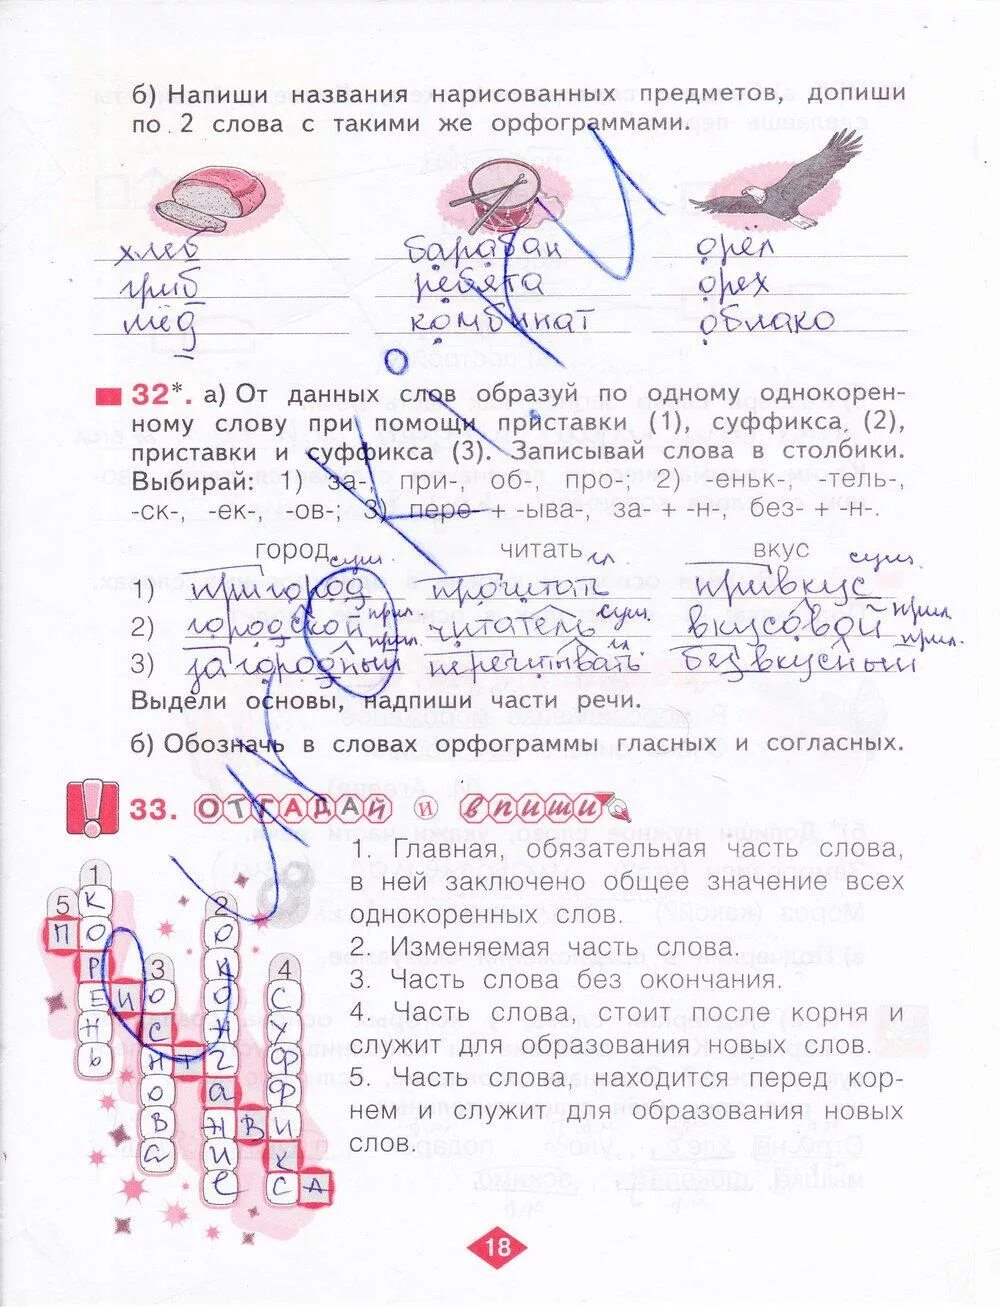 б) Напиши названия нарисованных предметов, допиши
по 2 слова с такими же орфограммами.
хлеб барабан орёл
гриб ребята орех
мёд комбинат облако
32*. а) От данных слов образуй по одному однокорен-
ному слову при помощи приставки (1), суффикса (2),
приставки и суффикса (3). Записывай слова в столбики.
Выбирай: 1) за-, при-, об-, про-; 2) -еньк-, -тель-,
-ск-, -ек-, -ов-; 3) пере- + -ыва-, за- + -н-, без- + -н-.
город сущ. читать гл вкус сущ.
1) пригород прочитать привкус
2) городской прил. читатель сущ. вкусовой прил.
3) загородный прил. перечитывать гл безвкусный прил.
Выдели основы, надпиши части речи.
б) Обозначь в словах орфограммы гласных и согласных.
33. ОТГАДАЙ И ВПИШИ
1. Главная, обязательная часть слова,
в ней заключено общее значение всех
однокоренных слов.
2. Изменяемая часть слова.
3. Часть слова без окончания.
4. Часть слова, стоит после корня и
служит для образования новых слов.
5. Часть слова, находится перед кор-
нем и служит для образования новых
слов.
1 КОРЕНЬ
2 ОКОНЧАНИЕ
3 ОСНОВА
4 СУФФИКС
5 ПРИСТАВКА
18